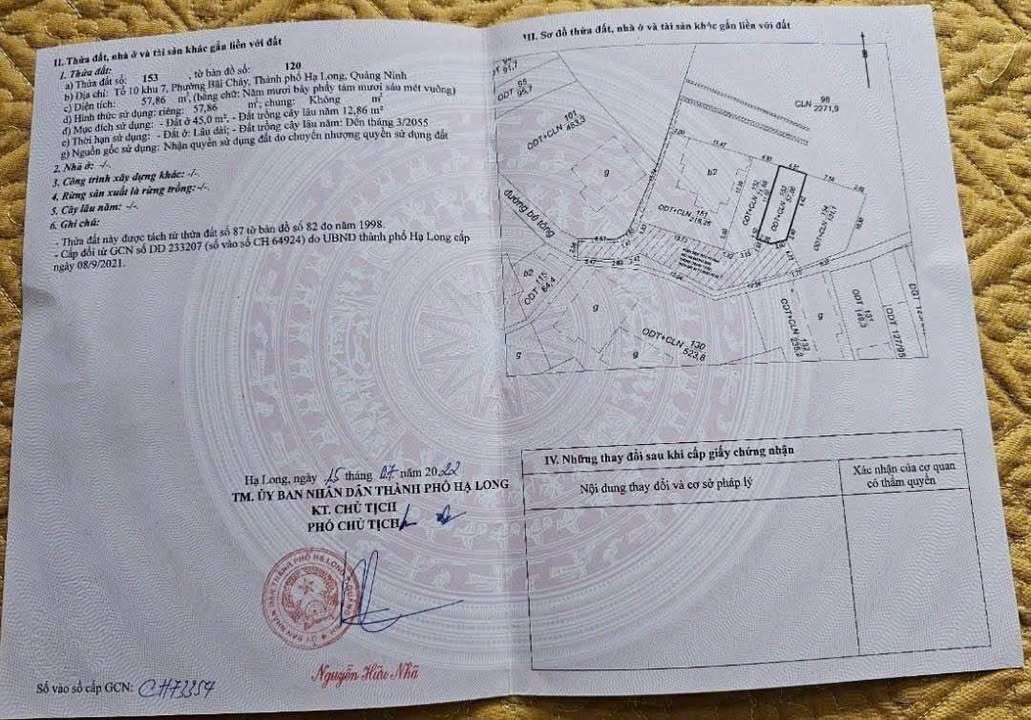 II. Thửa đất, nhà ở và tài sản khác gắn liền với đất
1. Thửa đất:
a) Thửa đất số: 153 , tờ bản đồ số: 120
b) Địa chỉ: Tổ 10 khu 7, Phường Bãi Cháy, Thành phố Hạ Long, Quảng Ninh
c) Diện tích: 57,86 m², (bằng chữ: Năm mươi bảy phẩy tám mươi sáu mét vuông)
d) Hình thức sử dụng: riêng: 57,86 m²; chung: Không m²
đ) Mục đích sử dụng: - Đất ở 45,0 m², - Đất trồng cây lâu năm 12,86 m²
e) Thời hạn sử dụng: - Đất ở: Lâu dài; - Đất trồng cây lâu năm: Đến tháng 3/2055
g) Nguồn gốc sử dụng: Nhận quyền sử dụng đất do chuyển nhượng quyền sử dụng đất
2. Nhà ở: -/-.
3. Công trình xây dựng khác: -/-.
4. Rừng sản xuất là rừng trồng:-/-.
5. Cây lâu năm: -/-.
6. Ghi chú:
- Thửa đất này được tách từ thửa đất số 87 tờ bản đồ số 82 đo năm 1998.
- Cấp đổi từ GCN số DD 233207 (số vào sổ CH 64924) do UBND thành phố Hạ Long cấp
ngày 08/9/2021.
Hạ Long, ngày 15 tháng 07 năm 2022
TM. ỦY BAN NHÂN DÂN THÀNH PHỐ HẠ LONG
KT. CHỦ TỊCH
PHÓ CHỦ TỊCH
Nguyễn Hữu Nhã
Số vào sổ cấp GCN: CH73354
III. Sơ đồ thửa đất, nhà ở và tài sản khác gắn liền với đất
91,7
ODT 65
95,7
ODT+CLN 101
453,3
g
CLN 98
2271,9
b2
ODT+CLN 151
218,25
ODT+CLN 152
ODT+CLN 153
57,86
ODT+CLN 154
đường bê tông
b2
ODT 115
64,4
g
g
g
ODT+CLN 130
523,8
ODT+CLN 132
g
ODT 131
ODT 127
IV. Những thay đổi sau khi cấp giấy chứng nhận
Nội dung thay đổi và cơ sở pháp lý
Xác nhận của cơ quan
có thẩm quyền